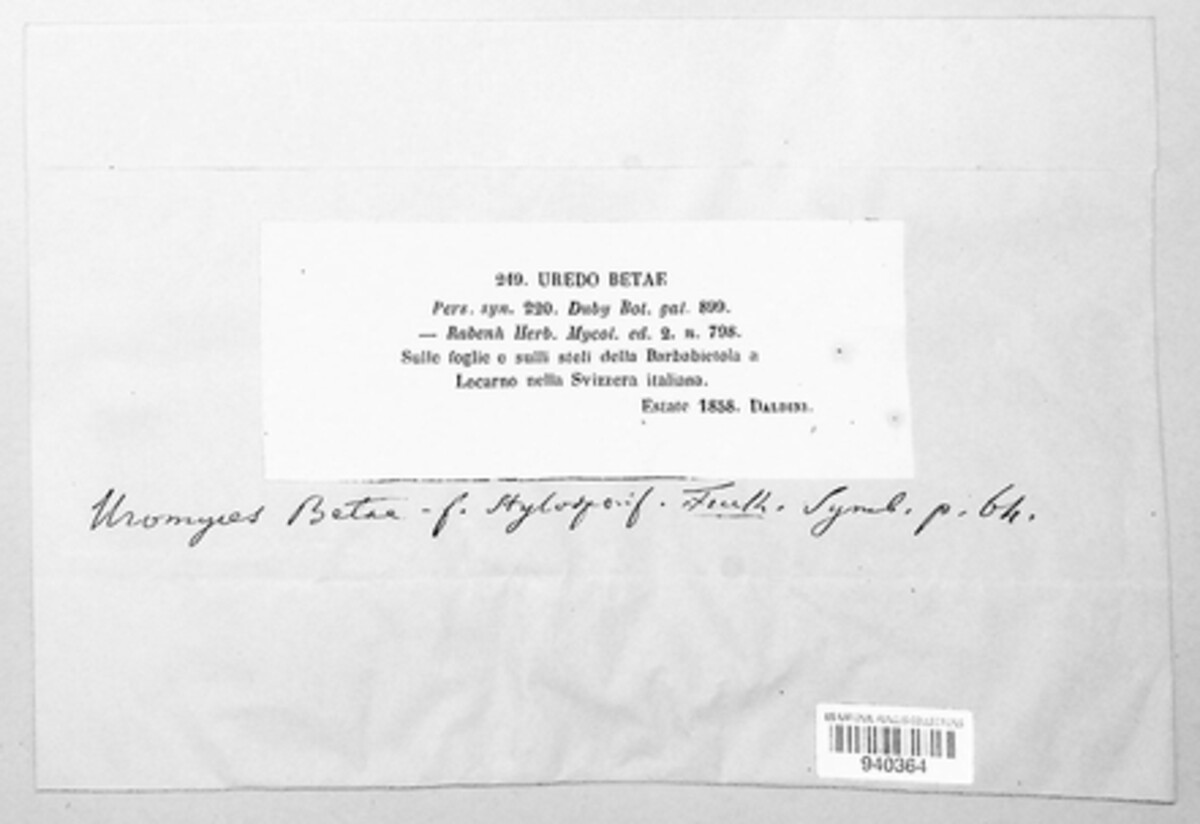 249. UREDO BETAE
Pers. syn. 220. Duby Bot. gal. 899.
— Rabenh Herb. Mycol. ed. 2. n. 798.
Sulle foglie e sulli steli della Barbabietola a
Locarno nella Svizzera italiana.
Estate 1858. DALDINI.
Uromyces Betae - f. Stylosporif. Fuck. Symb. p. 64.
US NATIONAL FUNGUS COLLECTIONS
940364